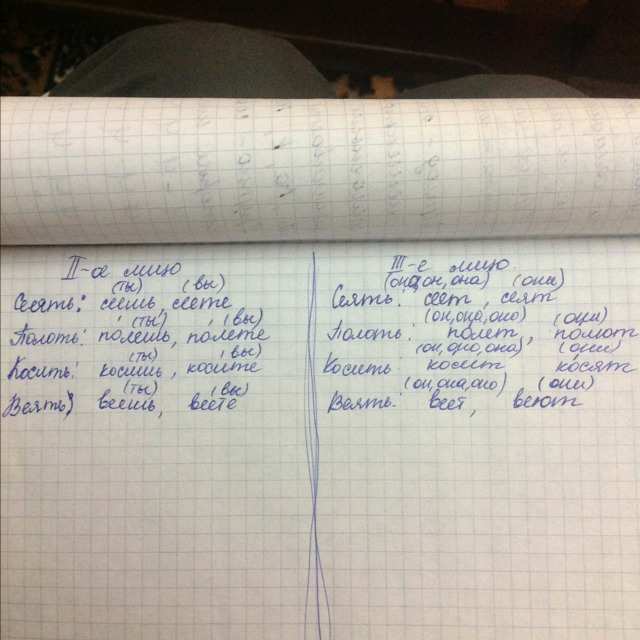 II-е лицо
(ты) (вы)
Сеять: сеешь, сеете
(ты) (вы)
Полоть: полешь, полете
(ты) (вы)
Косить: косишь, косите
(ты) (вы)
Веять: веешь, веете
III-е лицо
(оно, он, она) (они)
Сеять: сеет, сеят
(он, она, оно) (они)
Полоть: полет, полют
(он, оно, она) (они)
Косить косит косят
(он, она, оно) (они)
Веять: веет, веют